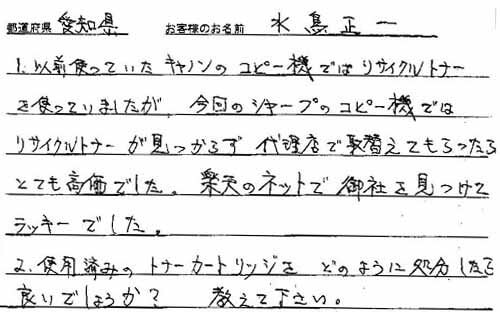 都道府県 愛知県 お客様のお名前 水鳥正一
1.以前使っていたキャノンのコピー機ではリサイクルトナー
を使っていましたが、今回のシャープのコピー機では
リサイクルトナーが見つからず 代理店で取替えてもらったら
とても高価でした。楽天のネットで御社を見つけて
ラッキーでした。
2.使用済みのトナーカートリッジを どのように処分したら
良いでしょうか? 教えて下さい。